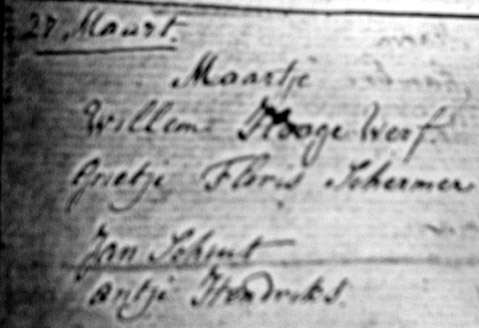 27 Maart.
Maartje
Willem Hooge Werf.
Grietje Floris Schermer
Jan Schut
Antje Hendriks.